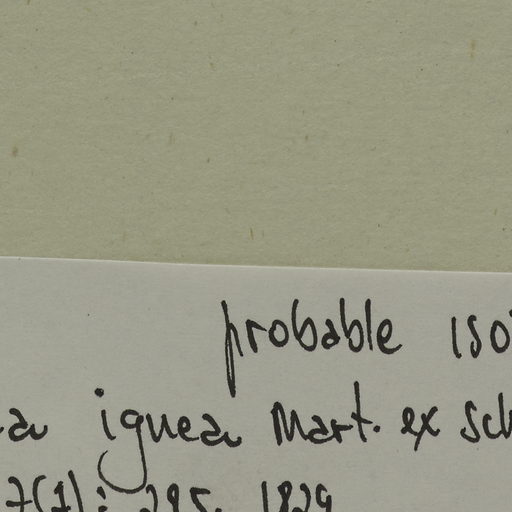 probable iso
a ignea Mart. ex Sch
7(1): 285. 1829